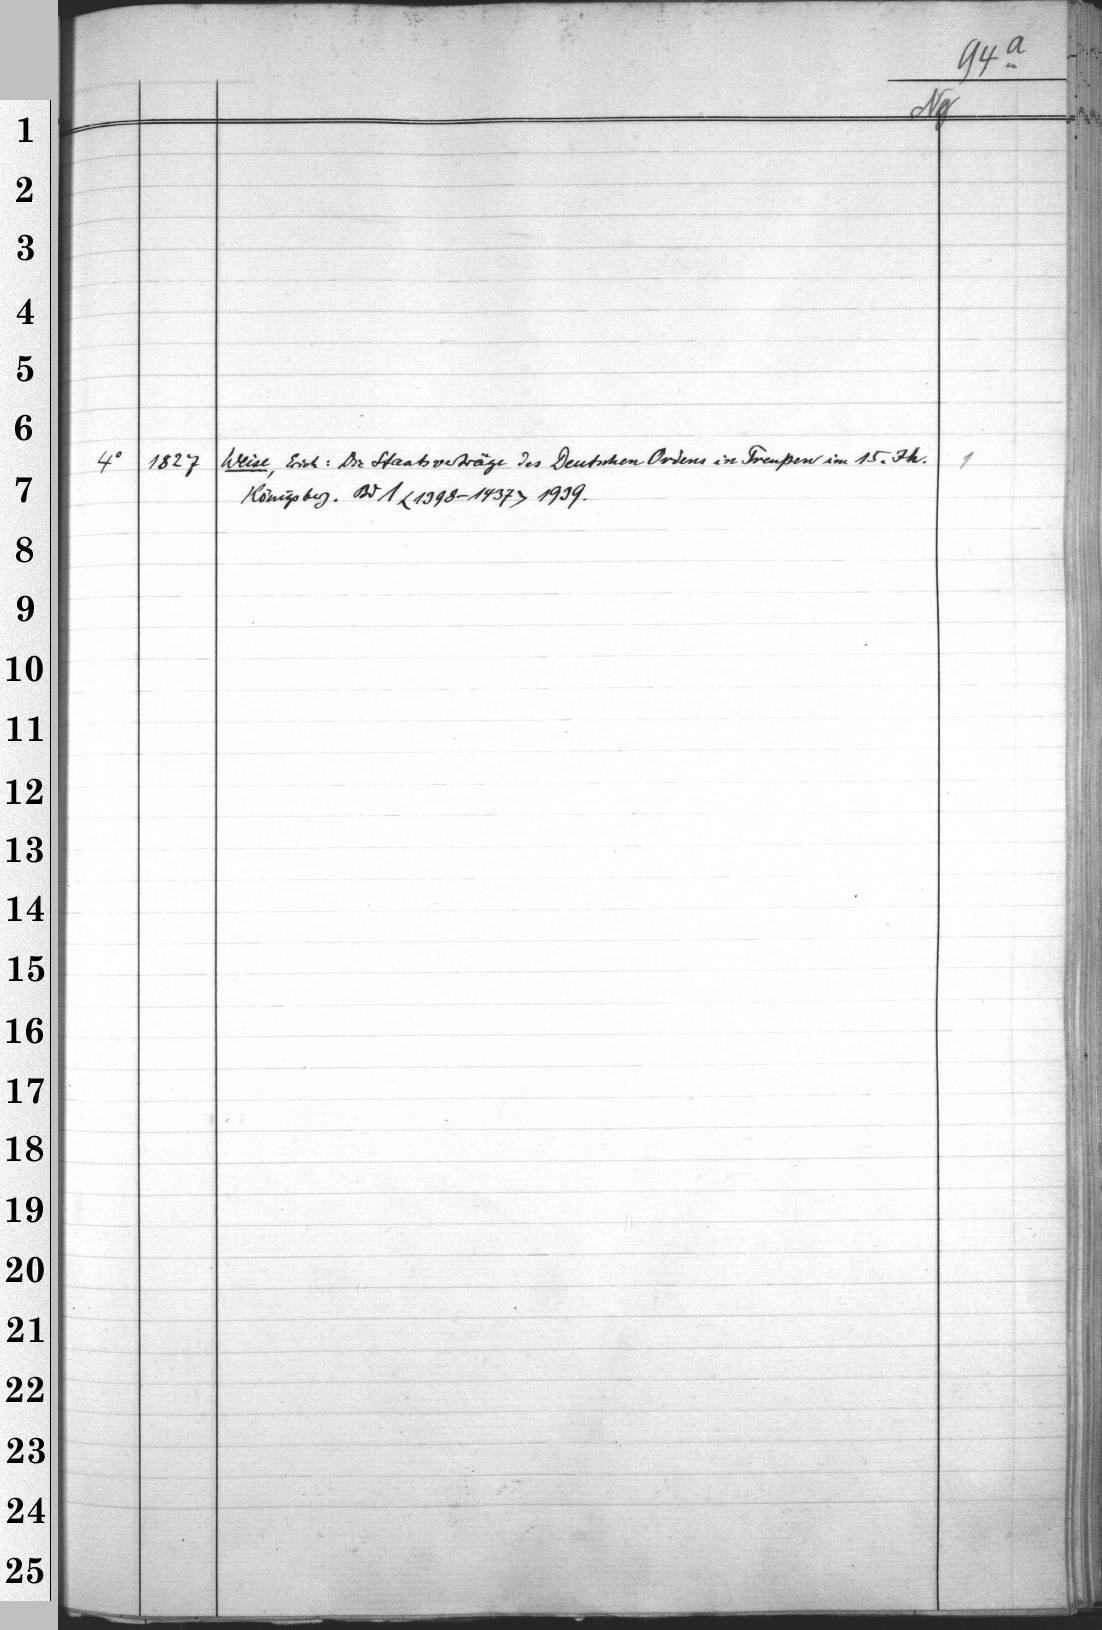 94a
Ng
1
2
3
4
5
6
4° 1827 Weise, Erich: Die Staatsverträge des Deutschen Ordens in Preußen im 15. Jh. 1
7
Königsberg. Bd 1 <1398-1437> 1939.
8
9
10
11
12
13
14
15
16
17
18
19
20
21
22
23
24
25